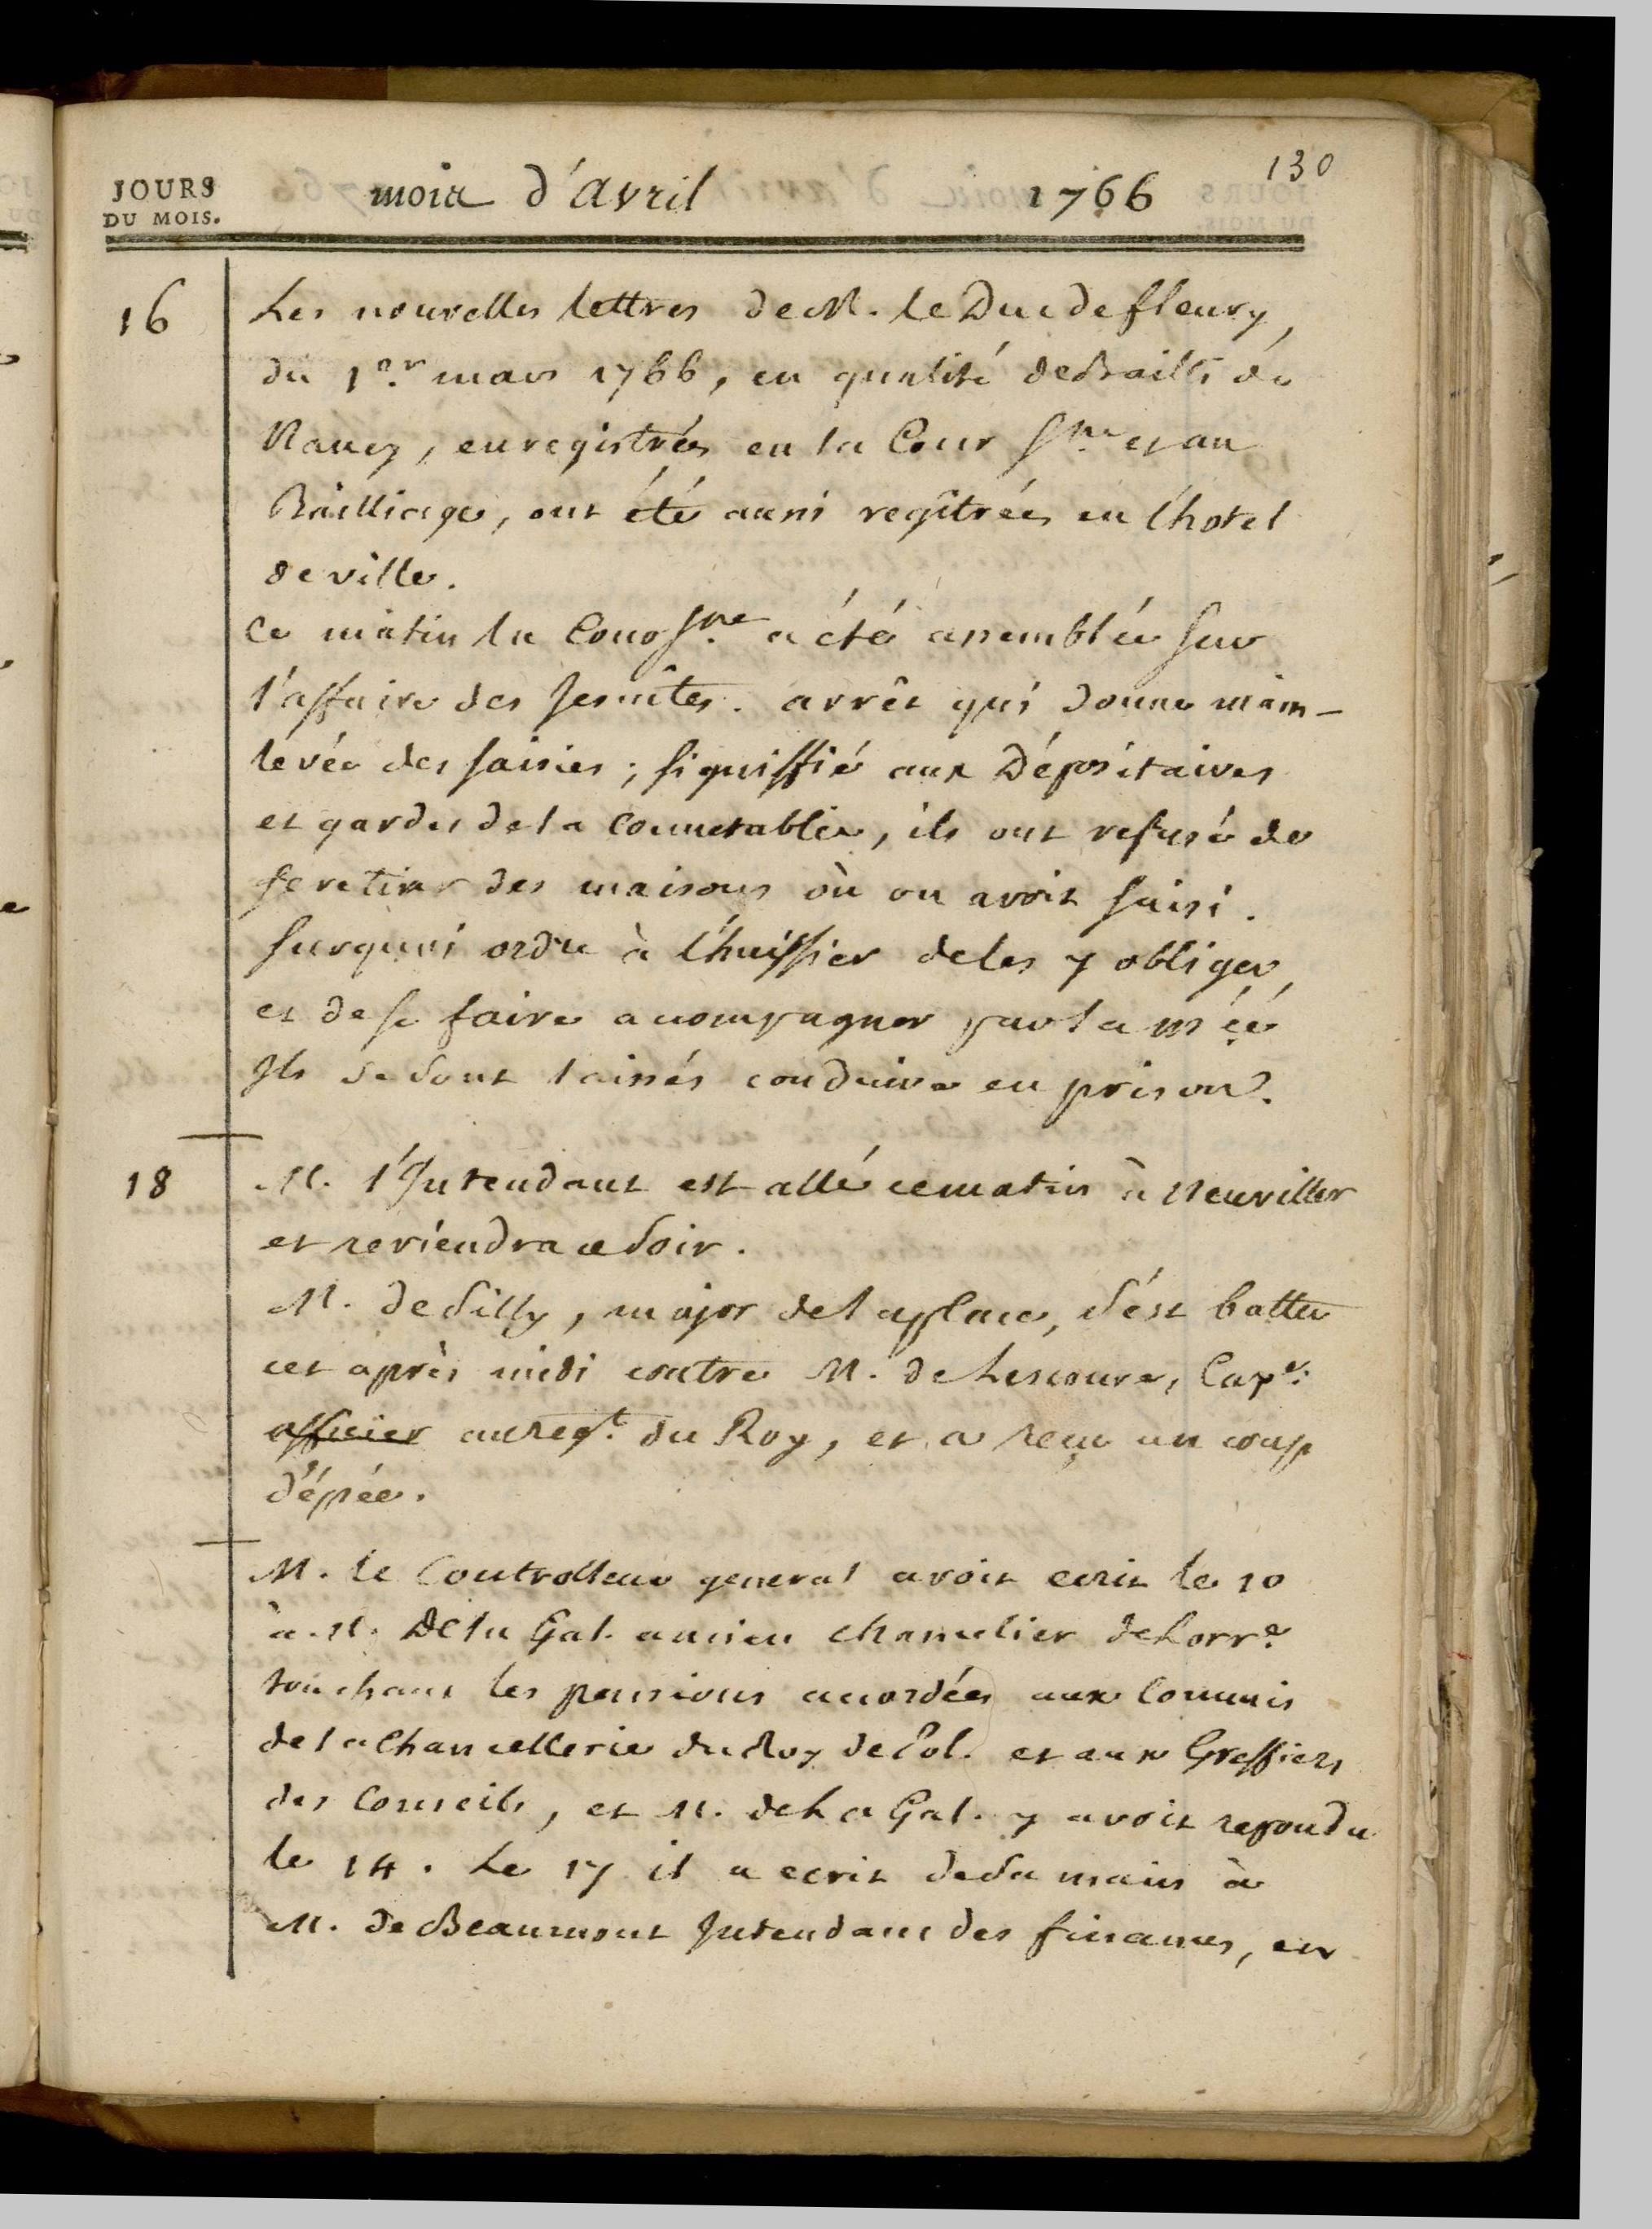 130
JOURS
DU MOIS.
mois d'avril 1766
16
Les nouvelles lettres de M. le Duc de fleury,
du 1er mars 1766, en qualité de Bailli de
Nancy, enregistrées en la Cour Sne et au
Bailliage, ont été aussi regîtrées en l'hotel
de ville.
Ce matin la Cour Sne a été assemblée sur
l'affaire des Jesuîtes. arrêt qui donne main-
levée des saisies; signiffié aux Dépositaires
et gardes de la Connetablie, ils ont refusé de
se retirer des maisons où on avoit saisi.
surquoi ordre à l'huissier de les y obliger,
et de se faire acompagner par la mée
Ils se sont laissés conduire en prison.
18
M. l'Intendant est allé ce matin à Neuviller
et reviendra ce soir.
M. de Silly, major de la place, s'est battu
cet après midi contre M. de Lescoure, Cape.
officier au regt. du Roy, et a reçu un coup
d'épée.
M. le Controlleur general avoit ecrit le 10
à M. De la Gal. ancien chancelier de Lorre.
touchant les pensions acordées aux Commis
de la Chancellerie du Roy de Pol. et aux Greffiers
des Conseils, et M. de La Gal. y avoit repondu
le 14. Le 17 il a ecrit de sa main à
M. de Beaumont Intendant des finances, en